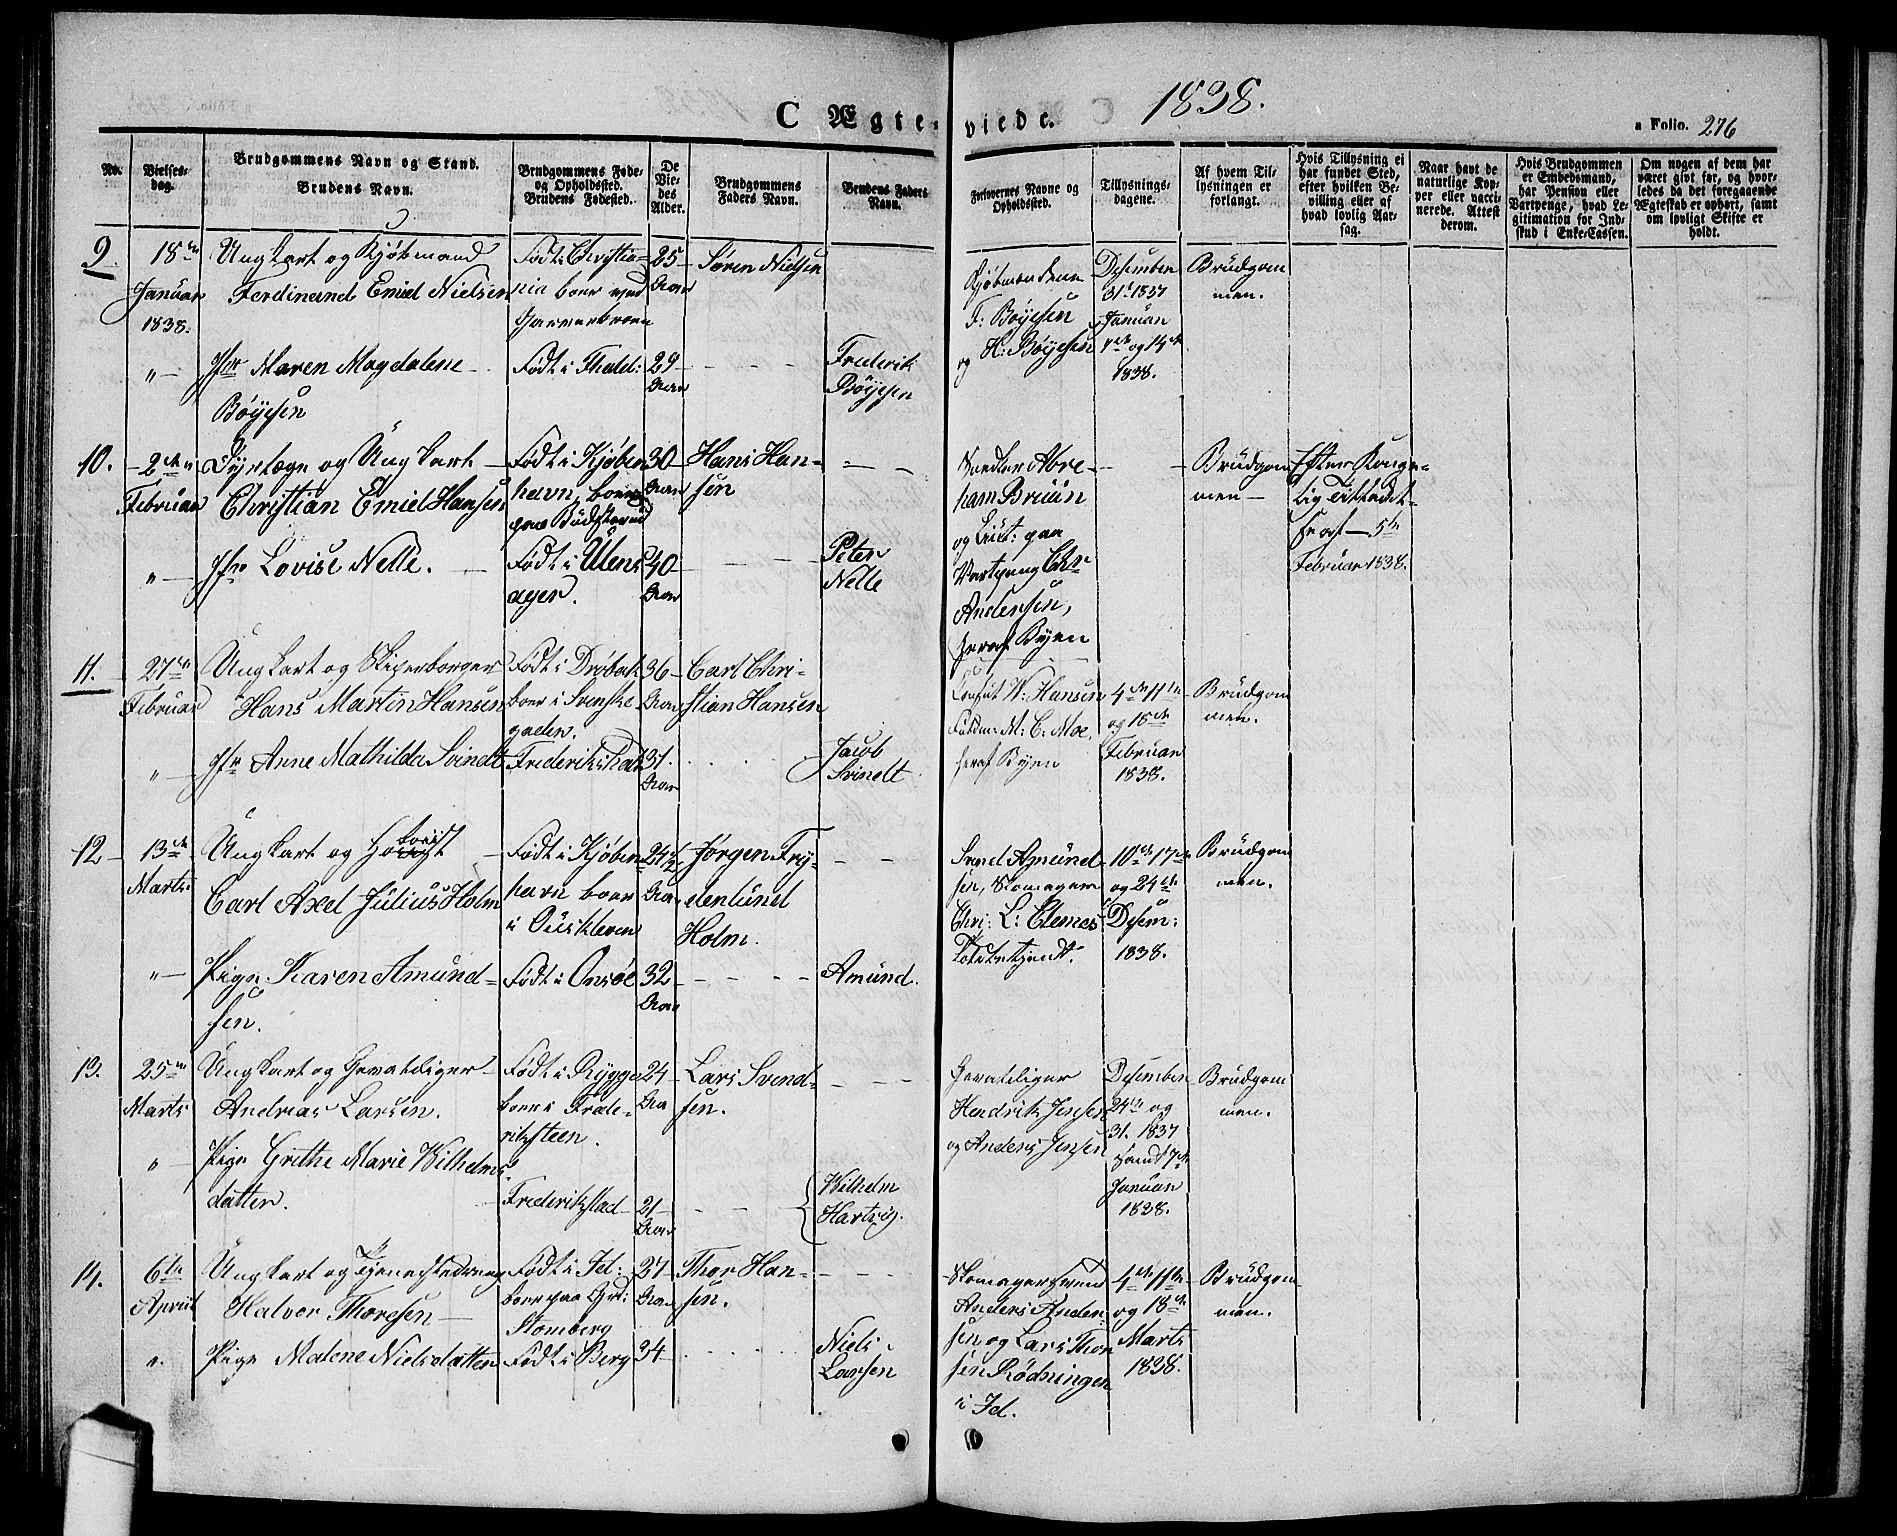 C Ægte-viede. 1838.
a Folio. 276
No.
Vielses-dag.
Brudgommens Navn og Stand.
Brudens Navn.
Brudgommens Føde- og Opholdssted.
Brudens Fødested.
De Viedes Alder.
Brudgommens Faders Navn.
Brudens Faders Navn.
Forlovernes Navne og Opholdssted.
Tillysnings-dagene.
Af hvem Tillysningen er forlangt.
Hvis Tillysning ei har fundet Sted, efter hvilken Bevilling eller af hvad lovlig Aarsag.
Naar havt de naturlige Kopper eller vaccinerede. Attest derom.
Hvis Brudgommen er Embedsmand, har Pension eller Vartpenge, hvad Legitimation for Indskud i Enke-Cassen.
Om nogen af dem har været givt før, og hvorledes da det foregaaende Ægteskab er ophørt, samt om lovligt Skifte er holdt.
9. 18de Januar 1838.
Ungkarl og Kjøbmand
Ferdinand Emiel Nielsen
Født i Christiania boer ved
25 Aar
Søren Nielsen
Kjøbmændene
F: Bøyesen
og H: Bøyesen
Desember
31te 1837
Januar
7de og 14de
1838.
Brudgommen.
" Jfr Maren Magdalene
Bøyesen
Født i Fhald:
29 Aar
Frederik
Bøyesen
10. 2den Februar
Dyrlæge og Ungkarl
Christian Emiel Hansen
Født i Kjøbenhavn, boer
paa Bødskerud
30 Aar
Hans Hansen
Sadler Abraham Bruun
og Liut: paa
Vartpeng Chr
Andersen,
heraf Byen
Brudgommen
Efter Kongelig Tilladelse af 5te
Februar 1838.
" Jfr Lovise Nelle.
Født i Ulensager.
40 Aar
Peter
Nelle
11. 27de Februar
Ungkarl og Skiperborger
Hans Martin Hansen
Født i Drøbak
boer i Svenskegaden.
36 Aar
Carl Christian Hansen
Consul W: Hansen
M: C: Moe,
heraf Byen
4de 11te
og 18de
Februar
1838.
Brudgommen.
" Jfr Anne Mathilda Svindt
Frederikshald
31. Aar
Jacob
Svindt
12 13de Marts
Ungkarl og
Carl Axel Julius Holm
Født i Kjøbenhavn boer
24½ Aar
Jørgen Frydenlund
Holm.
Svend Amundsen, Skomager
Chri: L: Clemes
10de 17de
og 24de
Desem:
1838.
Brudgommen.
" Pige Karen Amundsen.
Født i Onsøe
32 Aar
Amund.
13. 25de Marts
Ungkarl og Gevaldiger
Andreas Larsen.
Født i Rygge
boer i Frederiksteen.
24 Aa
Lars Svendsen.
Gevaldiger
Hendrik Jensen
og Anders Jensen
Desember
24de og
31. 1837
samt 7de
Januar
1838.
Brudgommen.
" Pige Grethe Marie Wilhelmsdatter.
Frederikstad
21 Aar
Wilhelm
Hartvig.
14. 6te April
Ungkarl og
Halvor Thoresen
Født i Id:
boer paa Grd:
Stomberg
27 Aar
Thor Hansen.
Skomagersvend
Anders Andersen, og Lars Thorsen Rødningen
i Id.
4de 11te
og 18de
Marts
1838.
Brudgommen.
". Pige Malene Nielsdatter
Født i Berg
34
Niels
Larsen